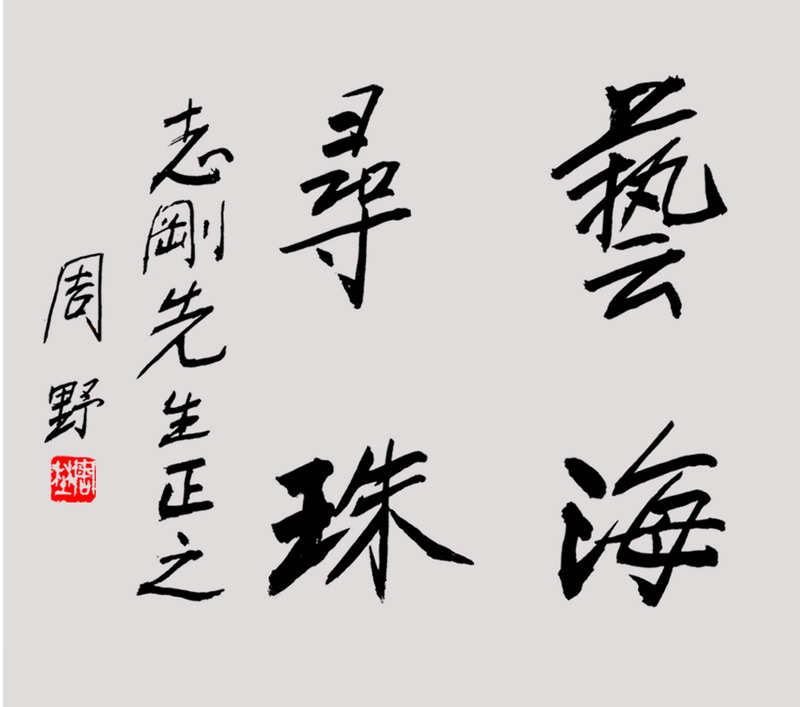 藝海
尋珠
志剛先生正之
周野